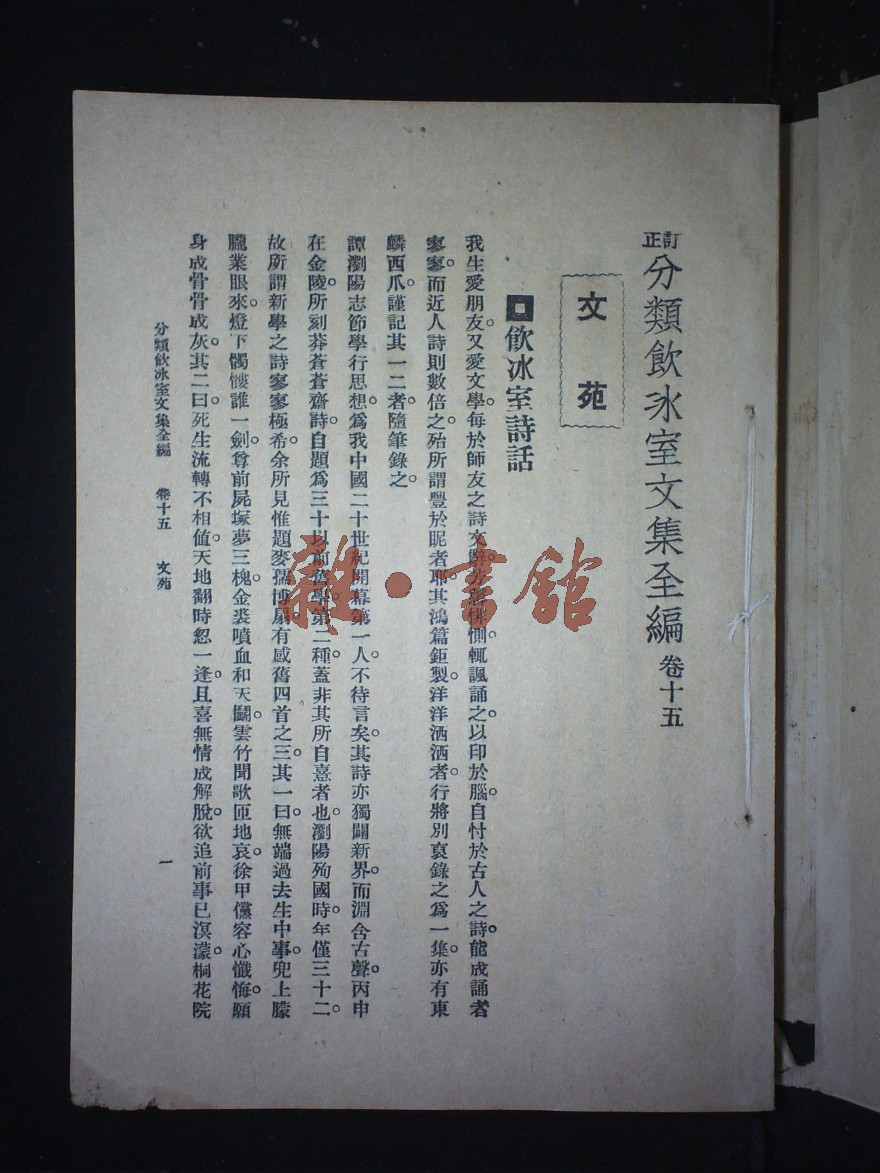 訂正分類飲冰室文集全編 卷十五
文苑
飲冰室詩話
我生愛朋友。又愛文學。每於師友之詩文辭。芳馨悱惻。輒諷誦之。以印於腦。自忖於古人之詩。能成誦者
寥寥。而近人詩則數倍之。殆所謂豐於昵者耶。其鴻篇鉅製。洋洋洒洒者。行將別裒錄之爲一集。亦有東
麟西爪。謹記其一二者。隨筆錄之。
譚瀏陽志節學行思想。爲我中國二十世紀開幕第一人。不待言矣。其詩亦獨闢新界而淵含古聲。丙申
在金陵。所刻莽蒼蒼齋詩。自題爲三十以前舊學第二種。蓋非其所自憙者也。瀏陽殉國時。年僅三十二。
故所謂新學之詩。寥寥極希。余所見惟題麥孺博扇。有感舊四首之三。其一曰。無端過去生中事。兜上朦
朧業眼來。燈下髑髏誰一劍。尊前屍塚夢三槐。金裘噴血和天鬭。雲竹聞歌匝地哀。徐甲儻容心懺悔。願
身成骨骨成灰。其二曰。死生流轉不相値。天地翻時忽一逢。且喜無情成解脫。欲追前事已溟濛。桐花院
分類飲冰室文集全編 卷十五 文苑 一
雜·書館